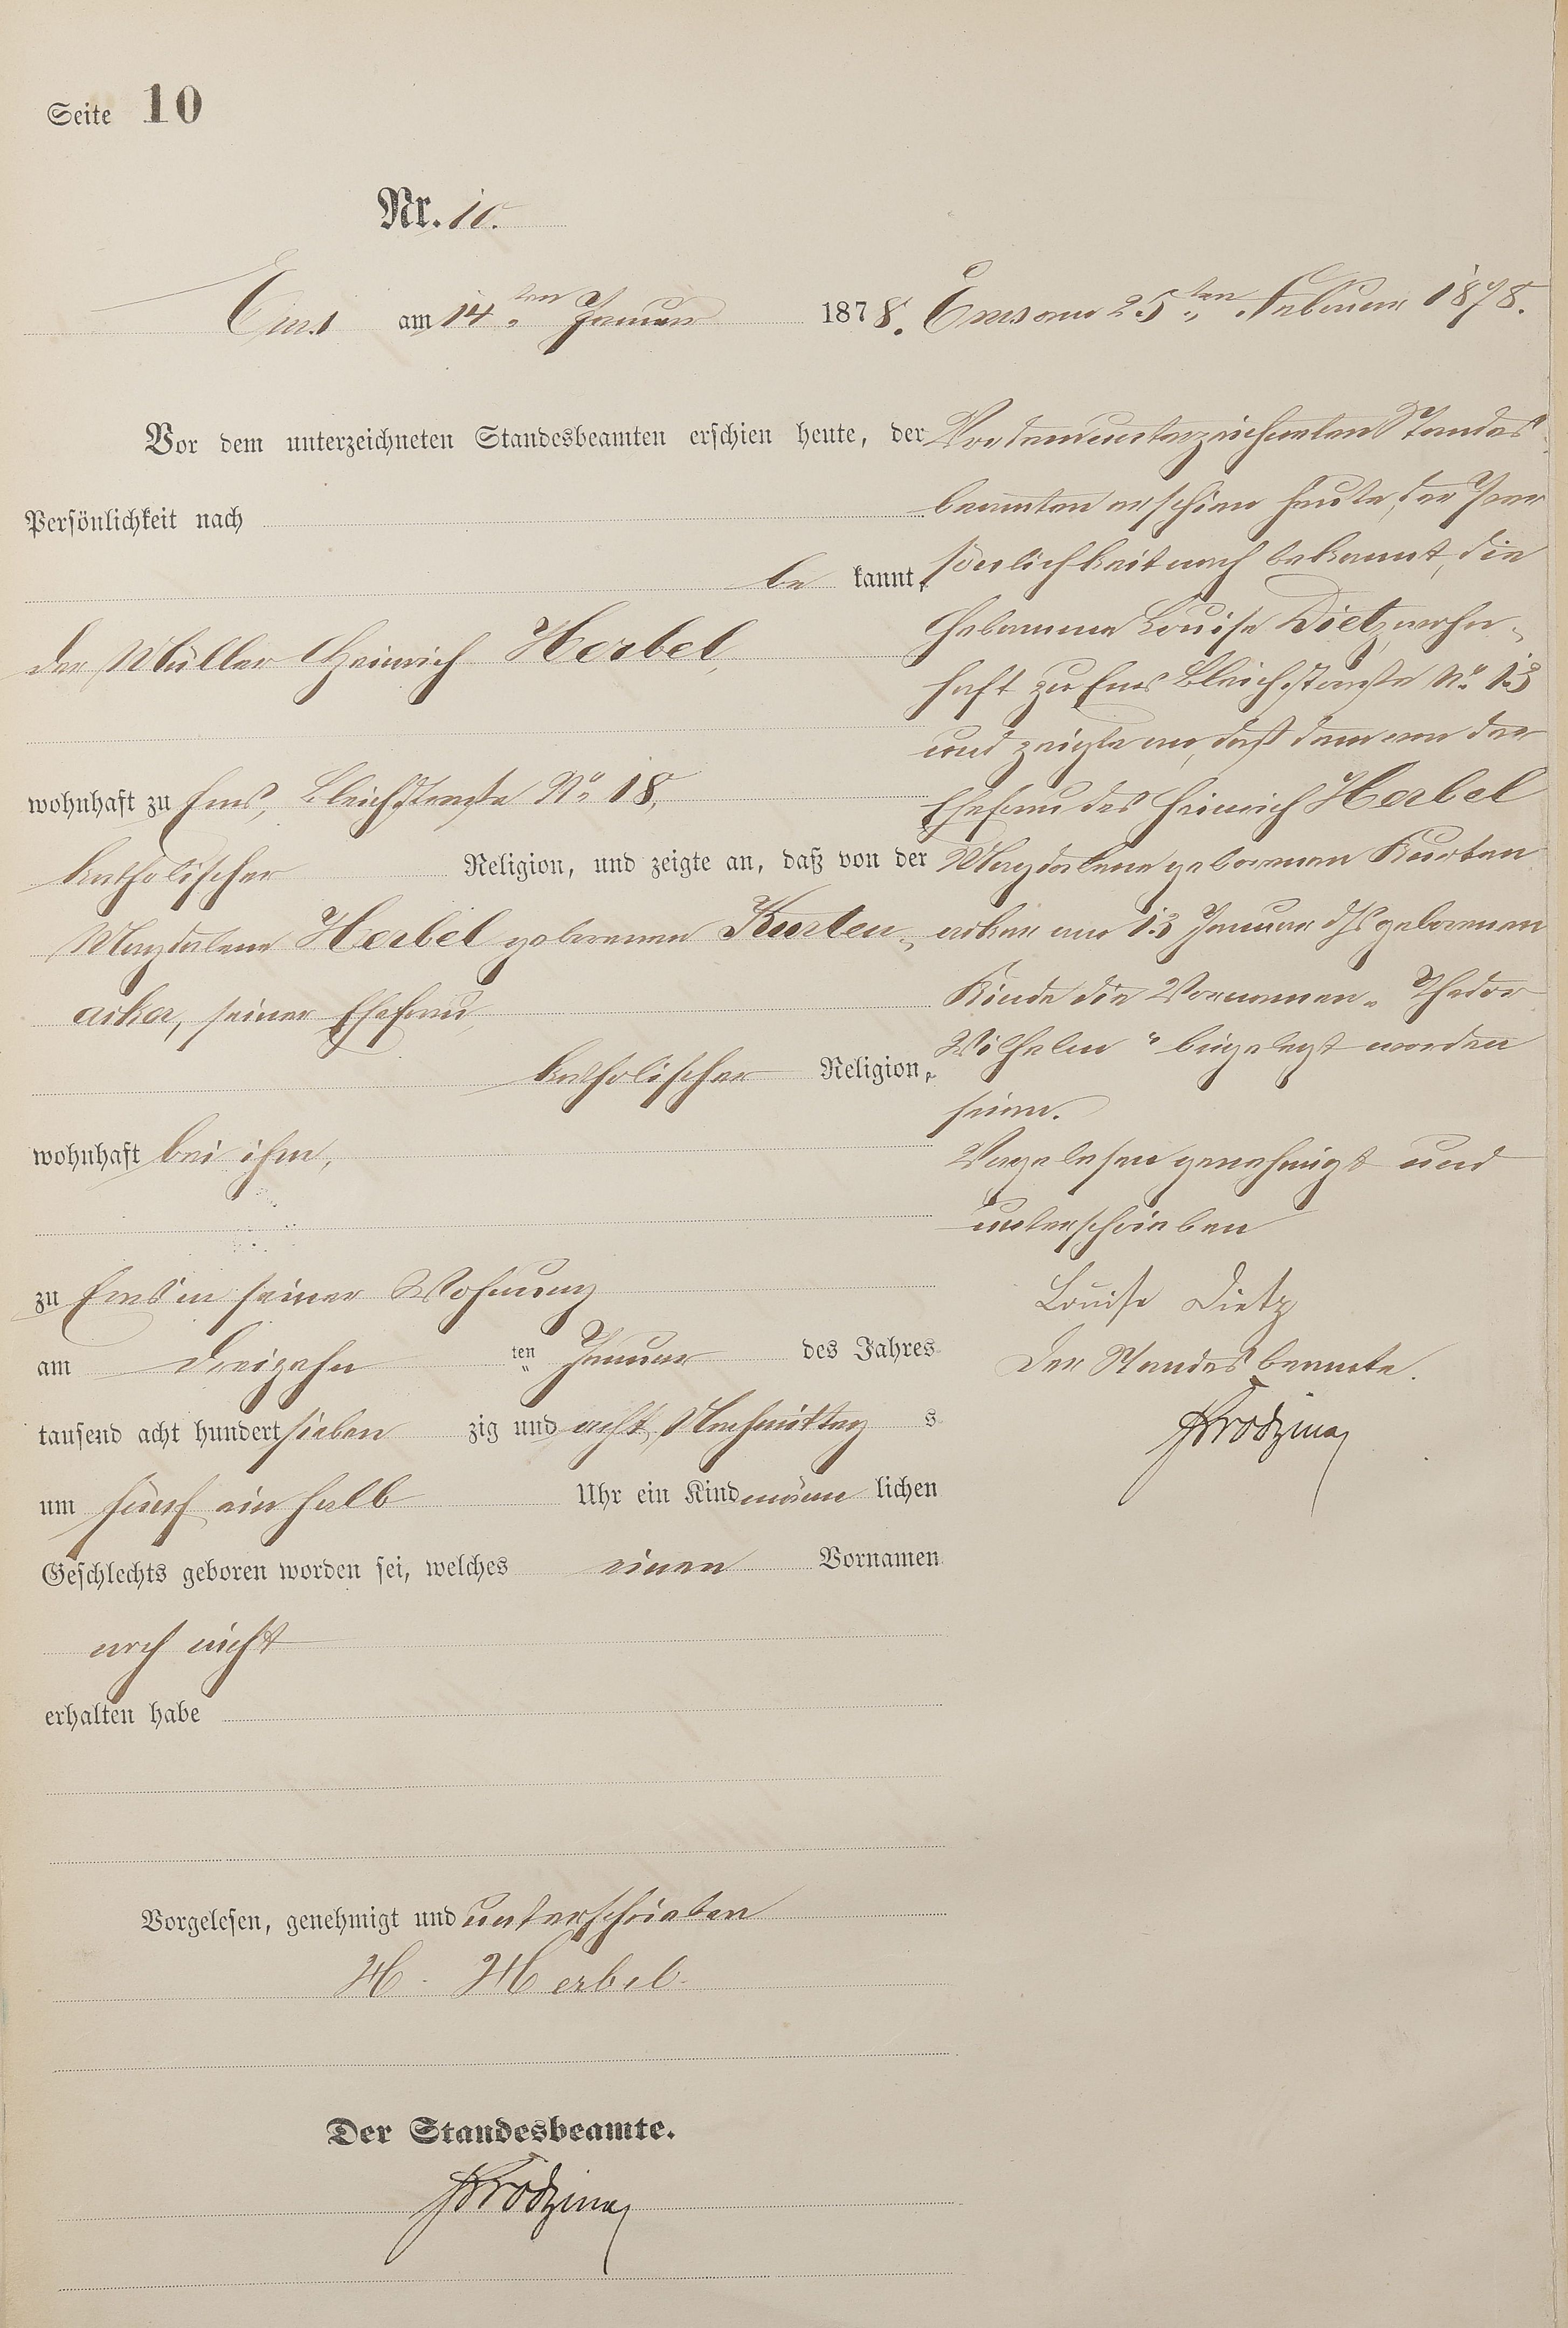 Seite 10
Nr. 10.
Ems am 14ten Januar 1878.
Vor dem unterzeichneten Standesbeamten erschien heute, der
Persönlichkeit nach
be kannt,
der Müller Heinrich Herbel,
wohnhaft zu Ems, Bleichstraße No 18,
katholischer Religion, und zeigte an, daß von der
Magdalena Herbel geborenen Kurten-
acker, seiner Ehefrau
katholischer Religion,
wohnhaft bei ihm,
zu Ems in seiner Wohnung
am dreizehn ten Januar des Jahres
tausend acht hundert sieben zig und acht Nachmittag s
um fünf ein halb Uhr ein Kind männ lichen
Geschlechts geboren worden sei, welches einen Vornamen
noch nicht
erhalten habe
Vorgelesen, genehmigt und unterschrieben
H. Herbel.
Der Standesbeamte.
Ems am 25ten Februar 1878.
Vor dem unterzeichneten Standes-
beamten erschien heute, der Per
sönlichkeit nach bekannt, die
Hebamme Louise Dietz, wohn-
haft zu Ems Bleichstraße No 13
und zeigte an, daß dem von der
Ehefrau des Heinrich Herbel
Magdalene geborenen Kurten
acker am 13 Januar ds Js geborenen
Kinde die Vornamen „Thedor
Wilhelm“ beigelegt worden
seien.
Vorgelesen genehmigt und
unterschrieben
Louise Dietz
Der Standesbeamte.